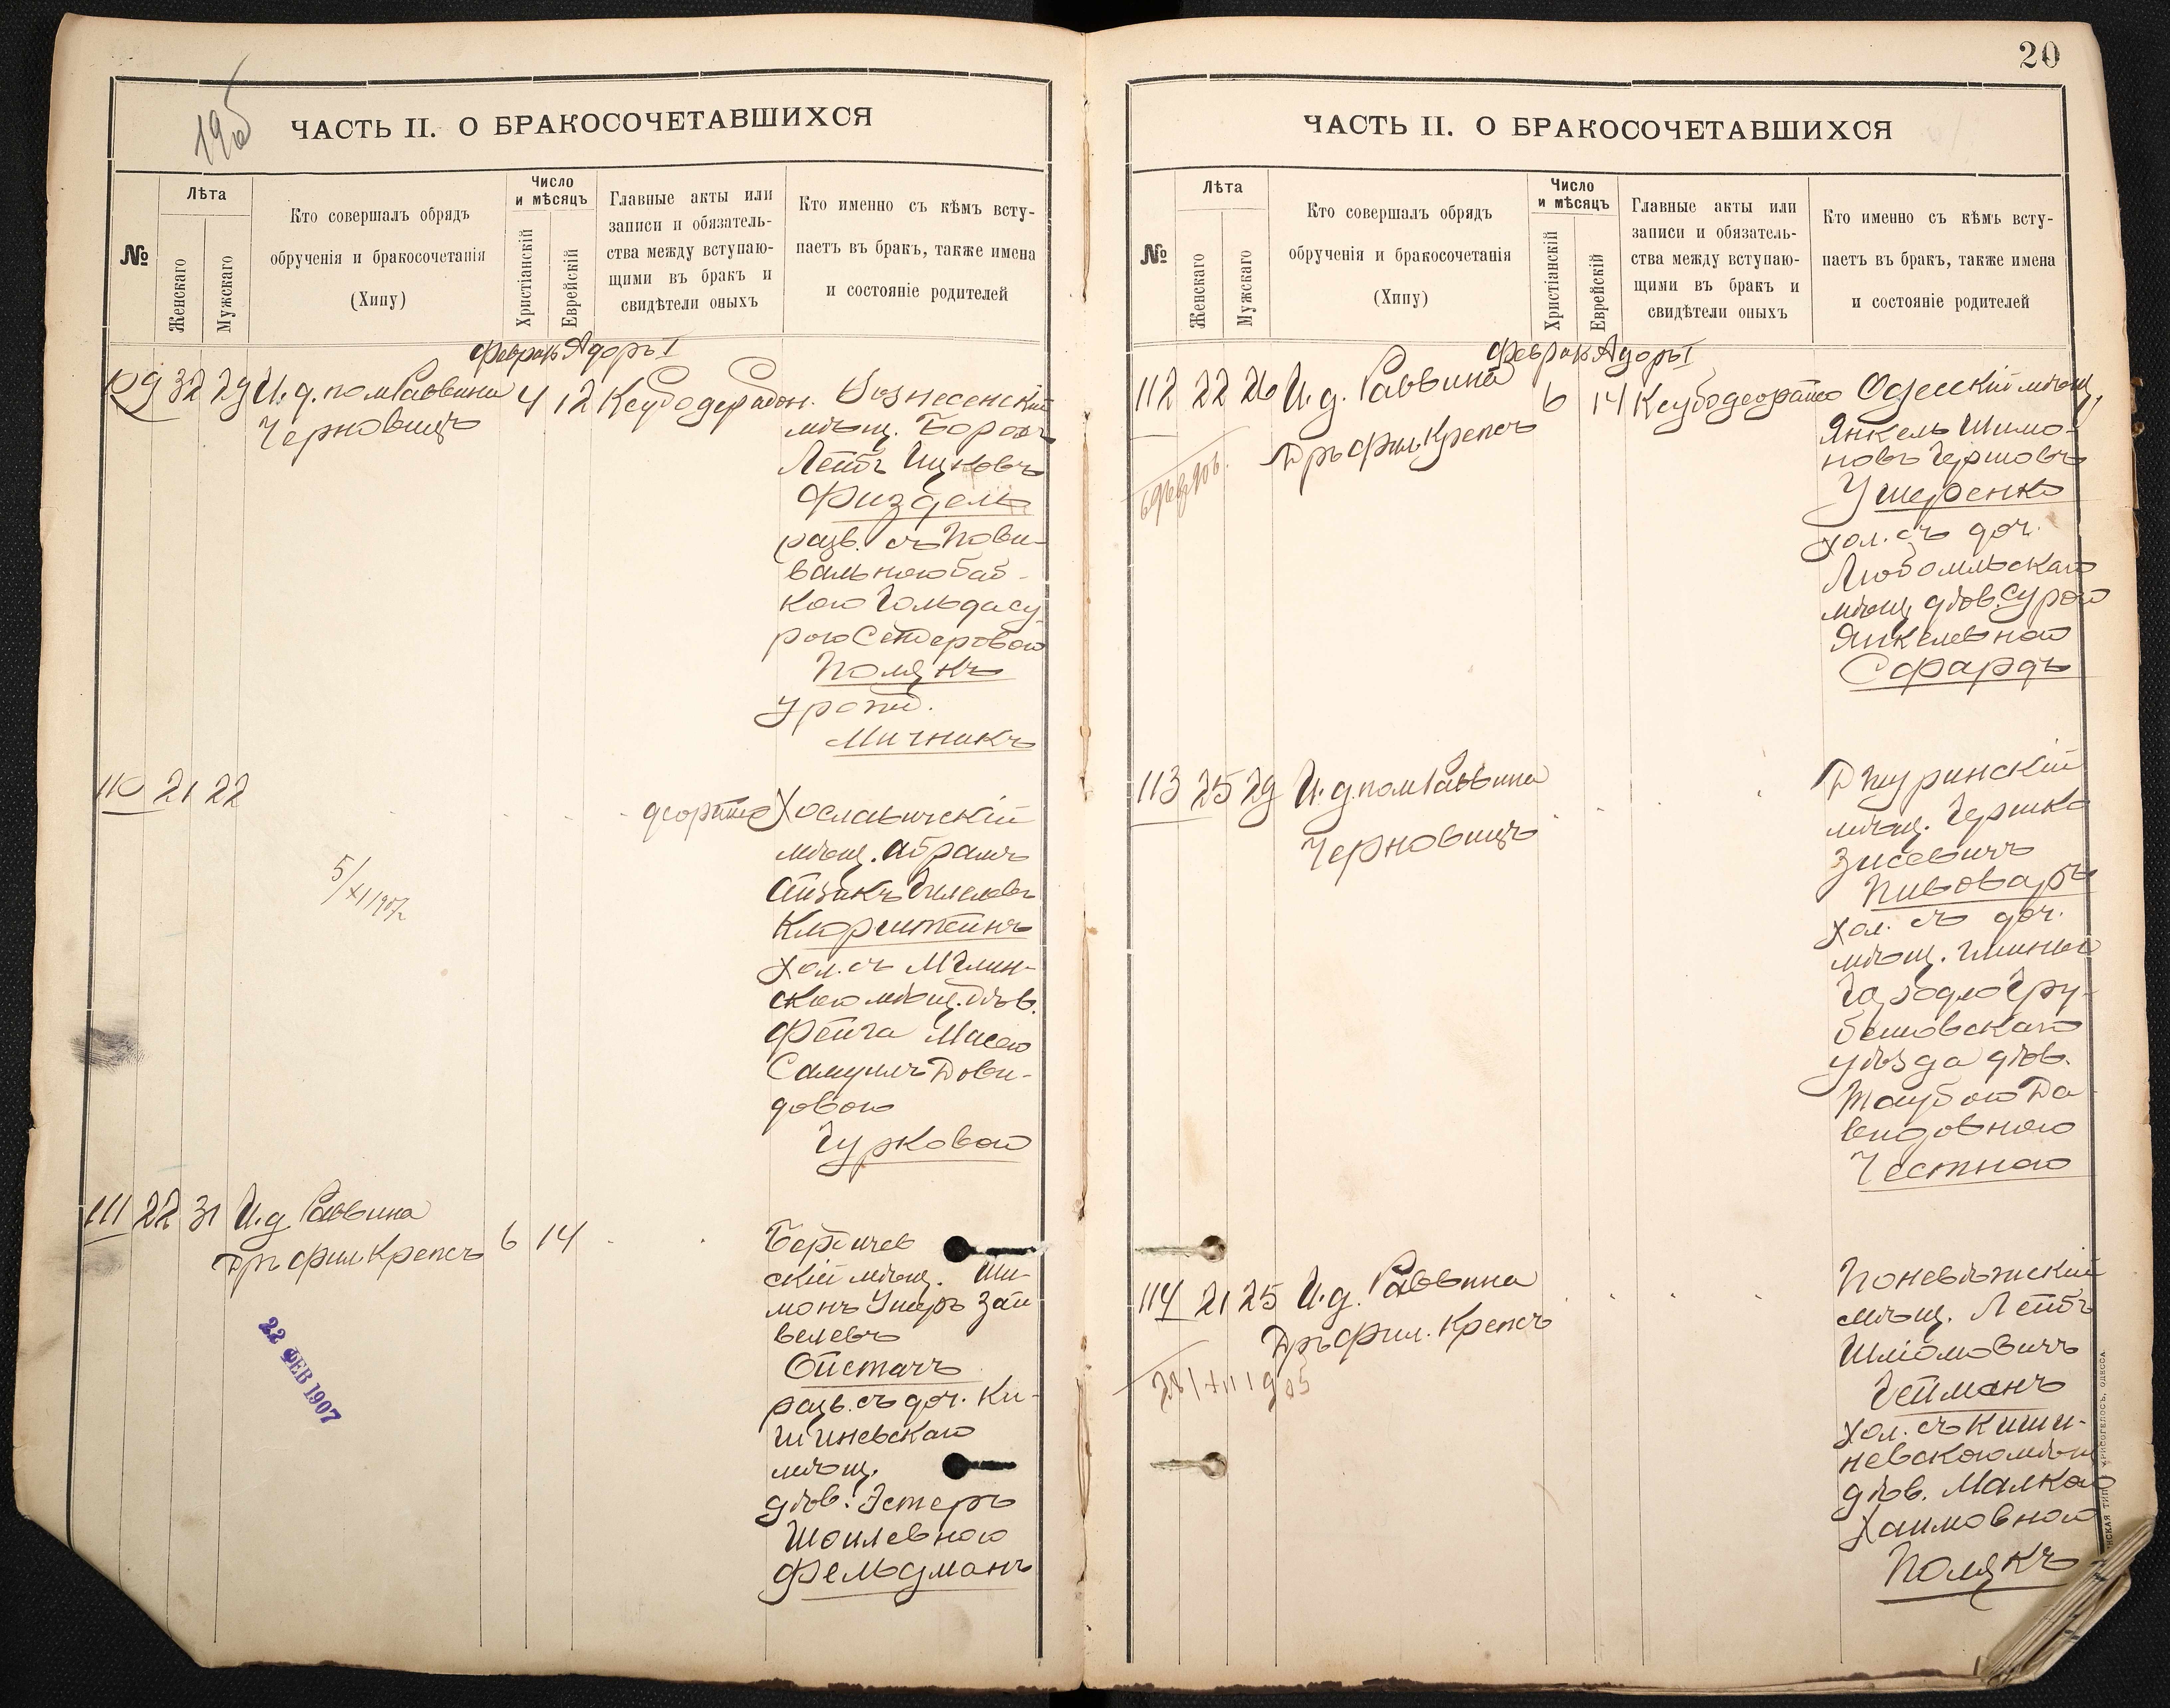 19об
ЧАСТЬ II. О БРАКОСОЧЕТАВШИХСЯ
№
Лѣта
Женскаго
Мужскаго
Кто совершалъ обрядъ
обрученія и бракосочетанія
(Хипу)
Число
и мѣсяцъ
Христіанскій
Еврейскій
Главные акты или
записи и обязатель-
ства между вступаю-
щими въ бракъ и
свидѣтели оныхъ
Кто именно съ кѣмъ всту-
паетъ въ бракъ, также имена
и состояніе родителей
Феврал Адоръ I
109 32 29 И. д. пом Раввина 4 12 Вознесенскій
Черновицъ мѣщ. Борохъ
Лейбъ Ицковъ
Физдель
разв. съ Пови-
вальною баб-
кою Гольда Су
рою Сендеровою
Полякъ
урожд.
Мичникъ
110 21 22
Хославичскій
мѣщ. Абрамъ
Айзикъ Гилелевъ
Клорштейнъ
Хол. съ Мглин-
скою мѣщ. дѣв.
Фейга Масею
Самуилъ Дови-
довою
Гурковою
5/XI 1907
111 22 31 И. д. Раввина
Дръ Фил Крепсъ 6 14
Бердичев
скій мѣщ. Ши
монъ Ушеръ Зай
велевъ
Ойстачъ
разв. съ доч. Ки-
шиневскаго
мѣщ.
дѣв. Эстеръ
Шоилевною
Фельдманъ
22 ФЕВ 1907
20
ЧАСТЬ II. О БРАКОСОЧЕТАВШИХСЯ
№
Лѣта
Женскаго
Мужскаго
Кто совершалъ обрядъ
обрученія и бракосочетанія
(Хипу)
Число
и мѣсяцъ
Христіанскій
Еврейскій
Главные акты или
записи и обязатель-
ства между вступаю-
щими въ бракъ и
свидѣтели оныхъ
Кто именно съ кѣмъ всту-
паетъ въ бракъ, также имена
и состояніе родителей
Феврал Адоръ I
112 22 26 И. д. Раввина 6 14 Одесскій мѣщ.
Дръ Фил Крепсъ
Янкель Шимо-
новъ Гершовъ
Ушеренко
хол. съ доч.
Любомльскаго
мѣщ. дѣв. Сурою
Янкелевною
Сфардъ
113 25 29 И. д. пом Раввина
Черновицъ
Джуринскій
мѣщ. Гершко
Зисевичъ
Пивоваръ
хол. съ доч.
мѣщ. гмины
Гру-
бешовскаго
уѣзда дѣв.
Таубою Да-
видовною
Честною
114 21 25 И. д. Раввина
Дръ Фил. Крепсъ
28/XII 1905
Поневѣжскій
мѣщ. Лейбъ
Шліомовичъ
Гейманъ
хол. съ Киши-
невскою мѣщ
дѣв. Малкою
Хаимовною
Полякъ